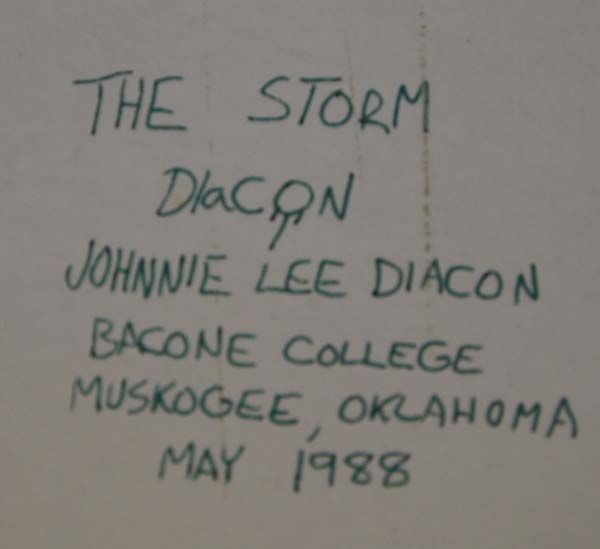 THE STORM
DIaCON
JOHNNIE LEE DIACON
BACONE COLLEGE
MUSKOGEE, OKLAHOMA
MAY 1988